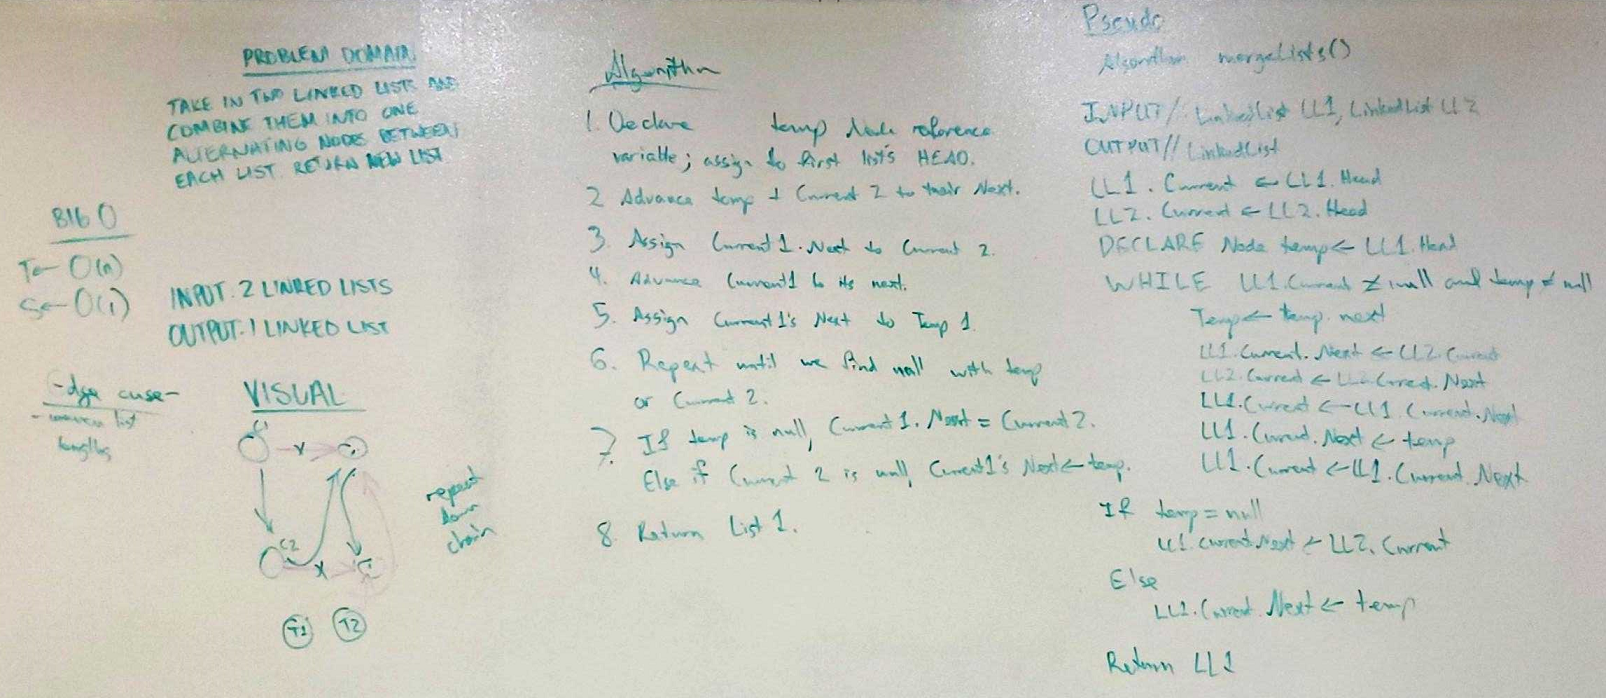 PROBLEM DOMAIN
TAKE IN TWO LINKED LISTS AND
COMBINE THEM INTO ONE
ALTERNATING NODES BETWEEN
EACH LIST. RETURN NEW LIST
BIG O
T← O(n)
S← O(1)
INPUT: 2 LINKED LISTS
OUTPUT: 1 LINKED LIST
-Edge case-
list
lengths
VISUAL
C1
C2
T1 T2
repeat
down
chain
Algorithm
1. Declare temp Node reference
variable; assign to first list's HEAD.
2 Advance temp + Current 2 to their Next.
3. Assign Current1.Next to Current 2.
4. Advance Current1 to its next.
5. Assign Current1's Next to Temp 1
6. Repeat until we find null with temp
or Current 2.
7. If temp is null, Current1.Next = Current2.
Else if Current 2 is null, Current1's Next← temp.
8. Return List 1.
Pseudo
Algorithm mergeLists()
INPUT// LinkedList LL1, LinkedList LL2
OUTPUT// LinkedList
LL1. Current ← LL1. Head
LL2. Current ← LL2. Head
DECLARE Node temp← LL1.Head
WHILE LL1.Current ≠ null and temp ≠ null
Temp← temp.next
LL1.Current.Next ← LL2.Current
LL2.Current ← LL2.Current.Next
LL1.Current ← LL1.Current.Next
LL1.Current.Next ← temp
LL1.Current ← LL1.Current.Next
If temp = null
LL1.Current.Next ← LL2.Current
Else
LL1.Current.Next ← temp
Return LL1